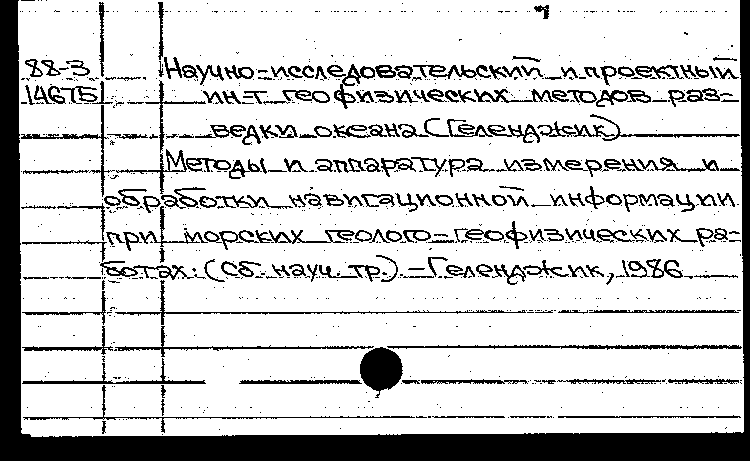 88-3 Научно-исследовательский и проектный
14675 ин-т геофизических методов раз-
ведки океана (Геленджик)
Методы и аппаратура измерения и
обработки навигационной информации
при морских геолого-геофизических ра-
ботах: (Сб. науч. тр.) – Геленджик, 1986